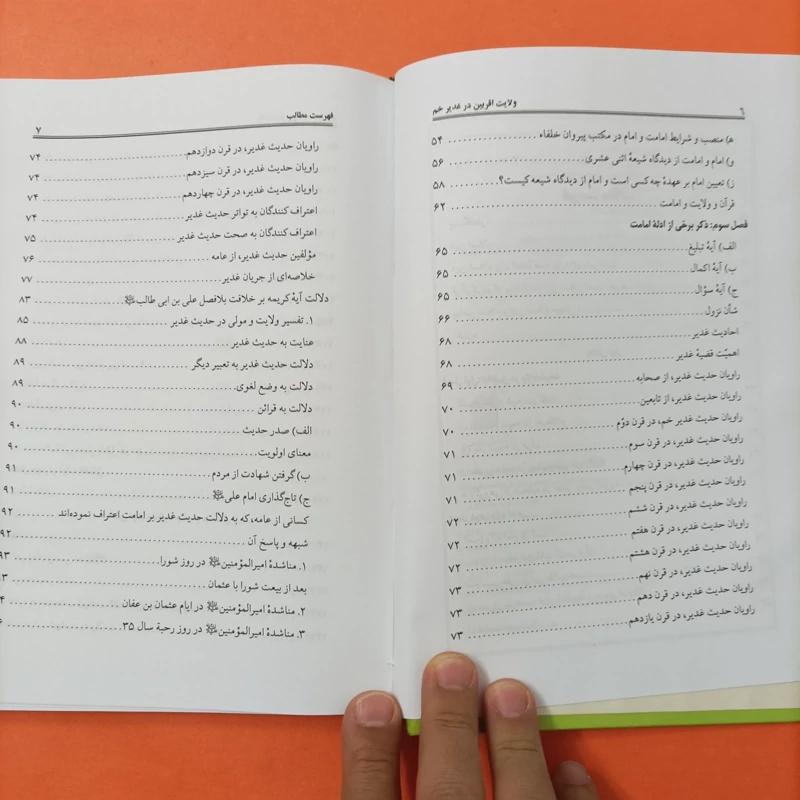 ۶ ولایت آفرین در غدیر خم
ه) منصب و شرایط امامت و امام در مکتب پیروان خلفاء ۵۴
و) امام و امامت از دیدگاه شیعهٔ اثنی عشری ۵۶
ز) تعیین امام بر عهدهٔ چه کسی است و امام از دیدگاه شیعه کیست؟ ۵۸
قرآن و ولایت و امامت ۶۲
فصل سوم: ذکر برخی از ادلهٔ امامت
الف) آیهٔ تبلیغ ۶۵
ب) آیهٔ اکمال ۶۵
ج) آیهٔ سؤال ۶۵
شأن نزول ۶۶
احادیث غدیر ۶۸
اهمیّت قضیهٔ غدیر ۶۸
راویان حدیث غدیر، از صحابه ۶۹
راویان حدیث غدیر، از تابعین ۷۰
راویان حدیث غدیر خم، در قرن دوّم ۷۰
راویان حدیث غدیر، در قرن سوم ۷۱
راویان حدیث غدیر، در قرن چهارم ۷۱
راویان حدیث غدیر، در قرن پنجم ۷۱
راویان حدیث غدیر، در قرن ششم ۷۲
راویان حدیث غدیر، در قرن هفتم ۷۲
راویان حدیث غدیر، در قرن هشتم ۷۲
راویان حدیث غدیر، در قرن نهم ۷۳
راویان حدیث غدیر، در قرن دهم ۷۳
راویان حدیث غدیر، در قرن یازدهم ۷۳
فهرست مطالب ۷
راویان حدیث غدیر، در قرن دوازدهم ۷۴
راویان حدیث غدیر، در قرن سیزدهم ۷۴
راویان حدیث غدیر، در قرن چهاردهم ۷۴
اعتراف کنندگان به تواتر حدیث غدیر ۷۴
اعتراف کنندگان به صحت حدیث غدیر ۷۵
مؤلفین حدیث غدیر، از عامه ۷۶
خلاصه‌ای از جریان غدیر ۷۷
دلالت آیهٔ کریمه بر خلافت بلافصل علی بن ابی طالب ۸۳
۱. تفسیر ولایت و مولی در حدیث غدیر ۸۵
عنایت به حدیث غدیر ۸۸
دلالت حدیث غدیر به تعبیر دیگر ۸۹
دلالت به وضع لغوی ۸۹
دلالت به قرائن ۹۰
الف) صدر حدیث ۹۰
معنای اولویت ۹۰
ب) گرفتن شهادت از مردم ۹۱
ج) تاج‌گذاری امام علی ۹۱
کسانی از عامه، که به دلالت حدیث غدیر بر امامت اعتراف نموده‌اند ۹۲
شبهه و پاسخ آن
۱. مناشدهٔ امیرالمؤمنین در روز شورا
بعد از بیعت شورا با عثمان
۲. مناشدهٔ امیرالمؤمنین در ایام عثمان بن عفان
۳. مناشدهٔ امیرالمؤمنین در روز رحبهٔ سال ۳۵